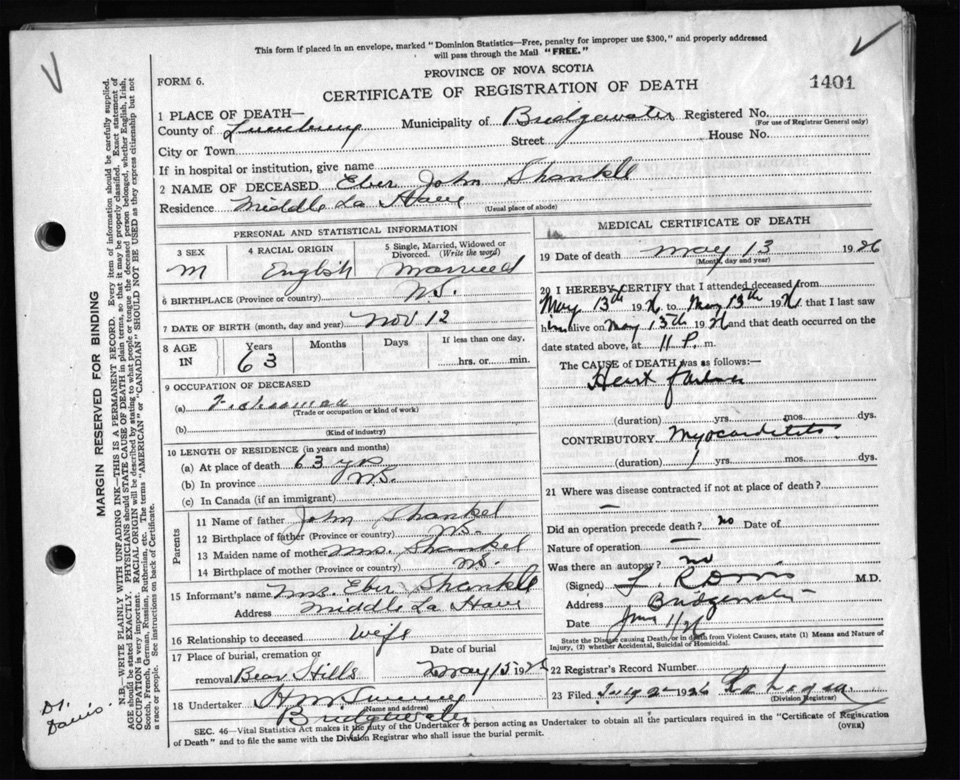 This form if placed in an envelope, marked "Dominion Statistics—Free, penalty for improper use $300," and properly addressed
will pass through the Mail "FREE."
FORM 6.
PROVINCE OF NOVA SCOTIA
CERTIFICATE OF REGISTRATION OF DEATH
1401
1 PLACE OF DEATH—
County of Lunenburg Municipality of Bridgewater Registered No.
(For use of Registrar General only)
City or Town Street House No.
If in hospital or institution, give name
2 NAME OF DECEASED Eber John Shankle
Residence Middle La Have
(Usual place of abode)
PERSONAL AND STATISTICAL INFORMATION
3 SEX 4 RACIAL ORIGIN 5 Single, Married, Widowed or Divorced. (Write the word)
M English Married
6 BIRTHPLACE (Province or country) NS.
7 DATE OF BIRTH (month, day and year) Nov 12
8 AGE IN Years Months Days If less than one day,
63 hrs. or min.
9 OCCUPATION OF DECEASED
(a) Fisherman
(Trade or occupation or kind of work)
(b)
(Kind of industry)
10 LENGTH OF RESIDENCE (in years and months)
(a) At place of death 63 yrs
(b) In province NS.
(c) In Canada (if an immigrant)
Parents
11 Name of father John Shankel
12 Birthplace of father (Province or country) NS.
13 Maiden name of mother Mrs. Shankel
14 Birthplace of mother (Province or country) NS.
15 Informant's name Mrs. Eber Shankle
Address Middle La Have
16 Relationship to deceased Wife
17 Place of burial, cremation or removal Date of burial
May 15 1926
18 Undertaker
(Name and address)
Bridgewater
MEDICAL CERTIFICATE OF DEATH
19 Date of death May 13 1926
(Month, day and year)
20 I HEREBY CERTIFY that I attended deceased from
May 13th 1926 to May 13th 1926 that I last saw
him alive on May 13th 1926 and that death occurred on the
date stated above, at 11 P. m.
The CAUSE of DEATH was as follows:—
Heart failure
(duration) yrs. mos. dys.
CONTRIBUTORY Myocarditis.
(duration) 1 yrs. mos. dys.
21 Where was disease contracted if not at place of death?
—
Did an operation precede death? no Date of
Nature of operation —
Was there an autopsy? no
(Signed) M.D.
Address Bridgewater
Date
State the Disease causing Death, or in death from Violent Causes, state (1) Means and Nature of
Injury, (2) whether Accidental, Suicidal or Homicidal.
22 Registrar's Record Number
23 Filed July 2 1926
(Division Registrar)
SEC. 46—Vital Statistics Act makes it the duty of the Undertaker or person acting as Undertaker to obtain all the particulars required in the "Certificate of Registration
of Death" and to file the same with the Division Registrar who shall issue the burial permit.
(OVER)
MARGIN RESERVED FOR BINDING
N.B.—WRITE PLAINLY WITH UNFADING INK—THIS IS A PERMANENT RECORD. Every item of information should be carefully supplied.
AGE should be stated EXACTLY. PHYSICIANS should STATE CAUSE OF DEATH in plain terms, so that it may be properly classified. Exact statement of
OCCUPATION is very important. RACIAL ORIGIN will be described by stating to what people or tongue the deceased person belonged, whether English, Irish,
Scotch, French, German, Russian, Ruthenian, etc. The terms "AMERICAN" or "CANADIAN" SHOULD NOT BE USED as they express citizenship but not
a race or people. See instructions on back of Certificate.
Dr. Davis.